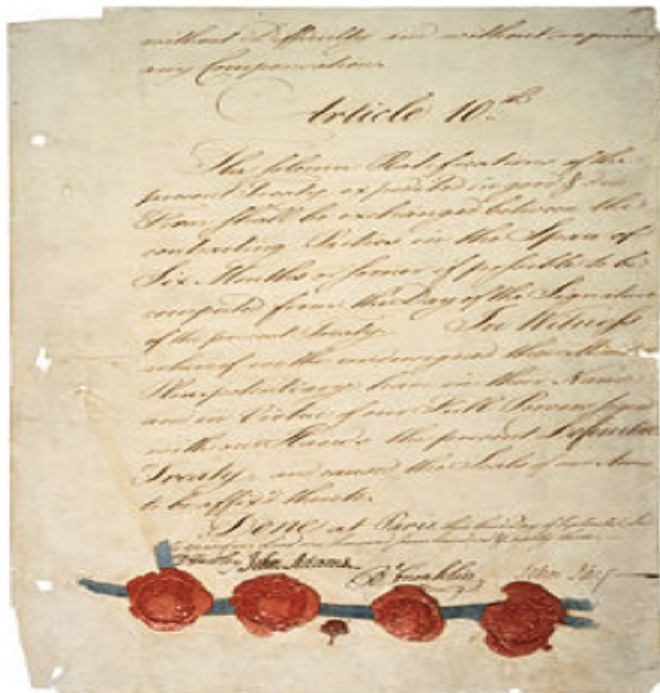 without Difficulty and without requiring
any Compensation.
Article 10th
The solemn Ratifications of the
present Treaty expedited in good & due
Form shall be exchanged between the
contracting Parties in the Space of
Six Months or sooner if possible to be
computed from the Day of the Signature
of the present Treaty. In Witness
whereof we the undersigned their
Plenipotentiary have in their Name
and in Virtue of our Full Powers
with our Hands the present Definitive
Treaty, and caused the Seals of our Arms
to be affix'd thereto.
Done at Paris, this third Day of September
John Adams
B Franklin John Jay